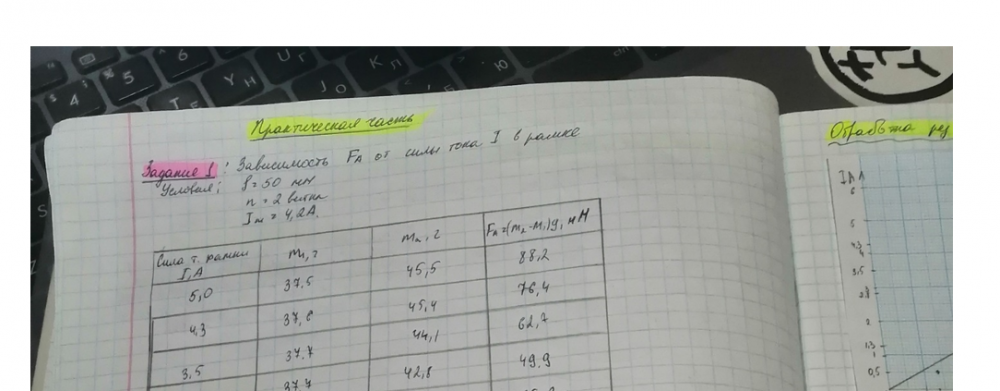 Практическая часть
Задание 1: Зависимость FА от силы тока I в рамке
Условия: l=50 мм
n=2 витка
Iм=4,2А.
Сила т. рамки I,А m₁,г m₂,г FА=(m₂-m₁)g, мН
5,0 37,5 45,5 88,2
4,3 37,6 45,4 76,4
3,5 37,7 44,1 62,7
37,7 42,8 49,9
Обработка рез
I,А
6
5
4
3,5
2,8
2
1,3
1
0,5
5
6
4
Е
У Н
U Г
J О
К Л
Ю